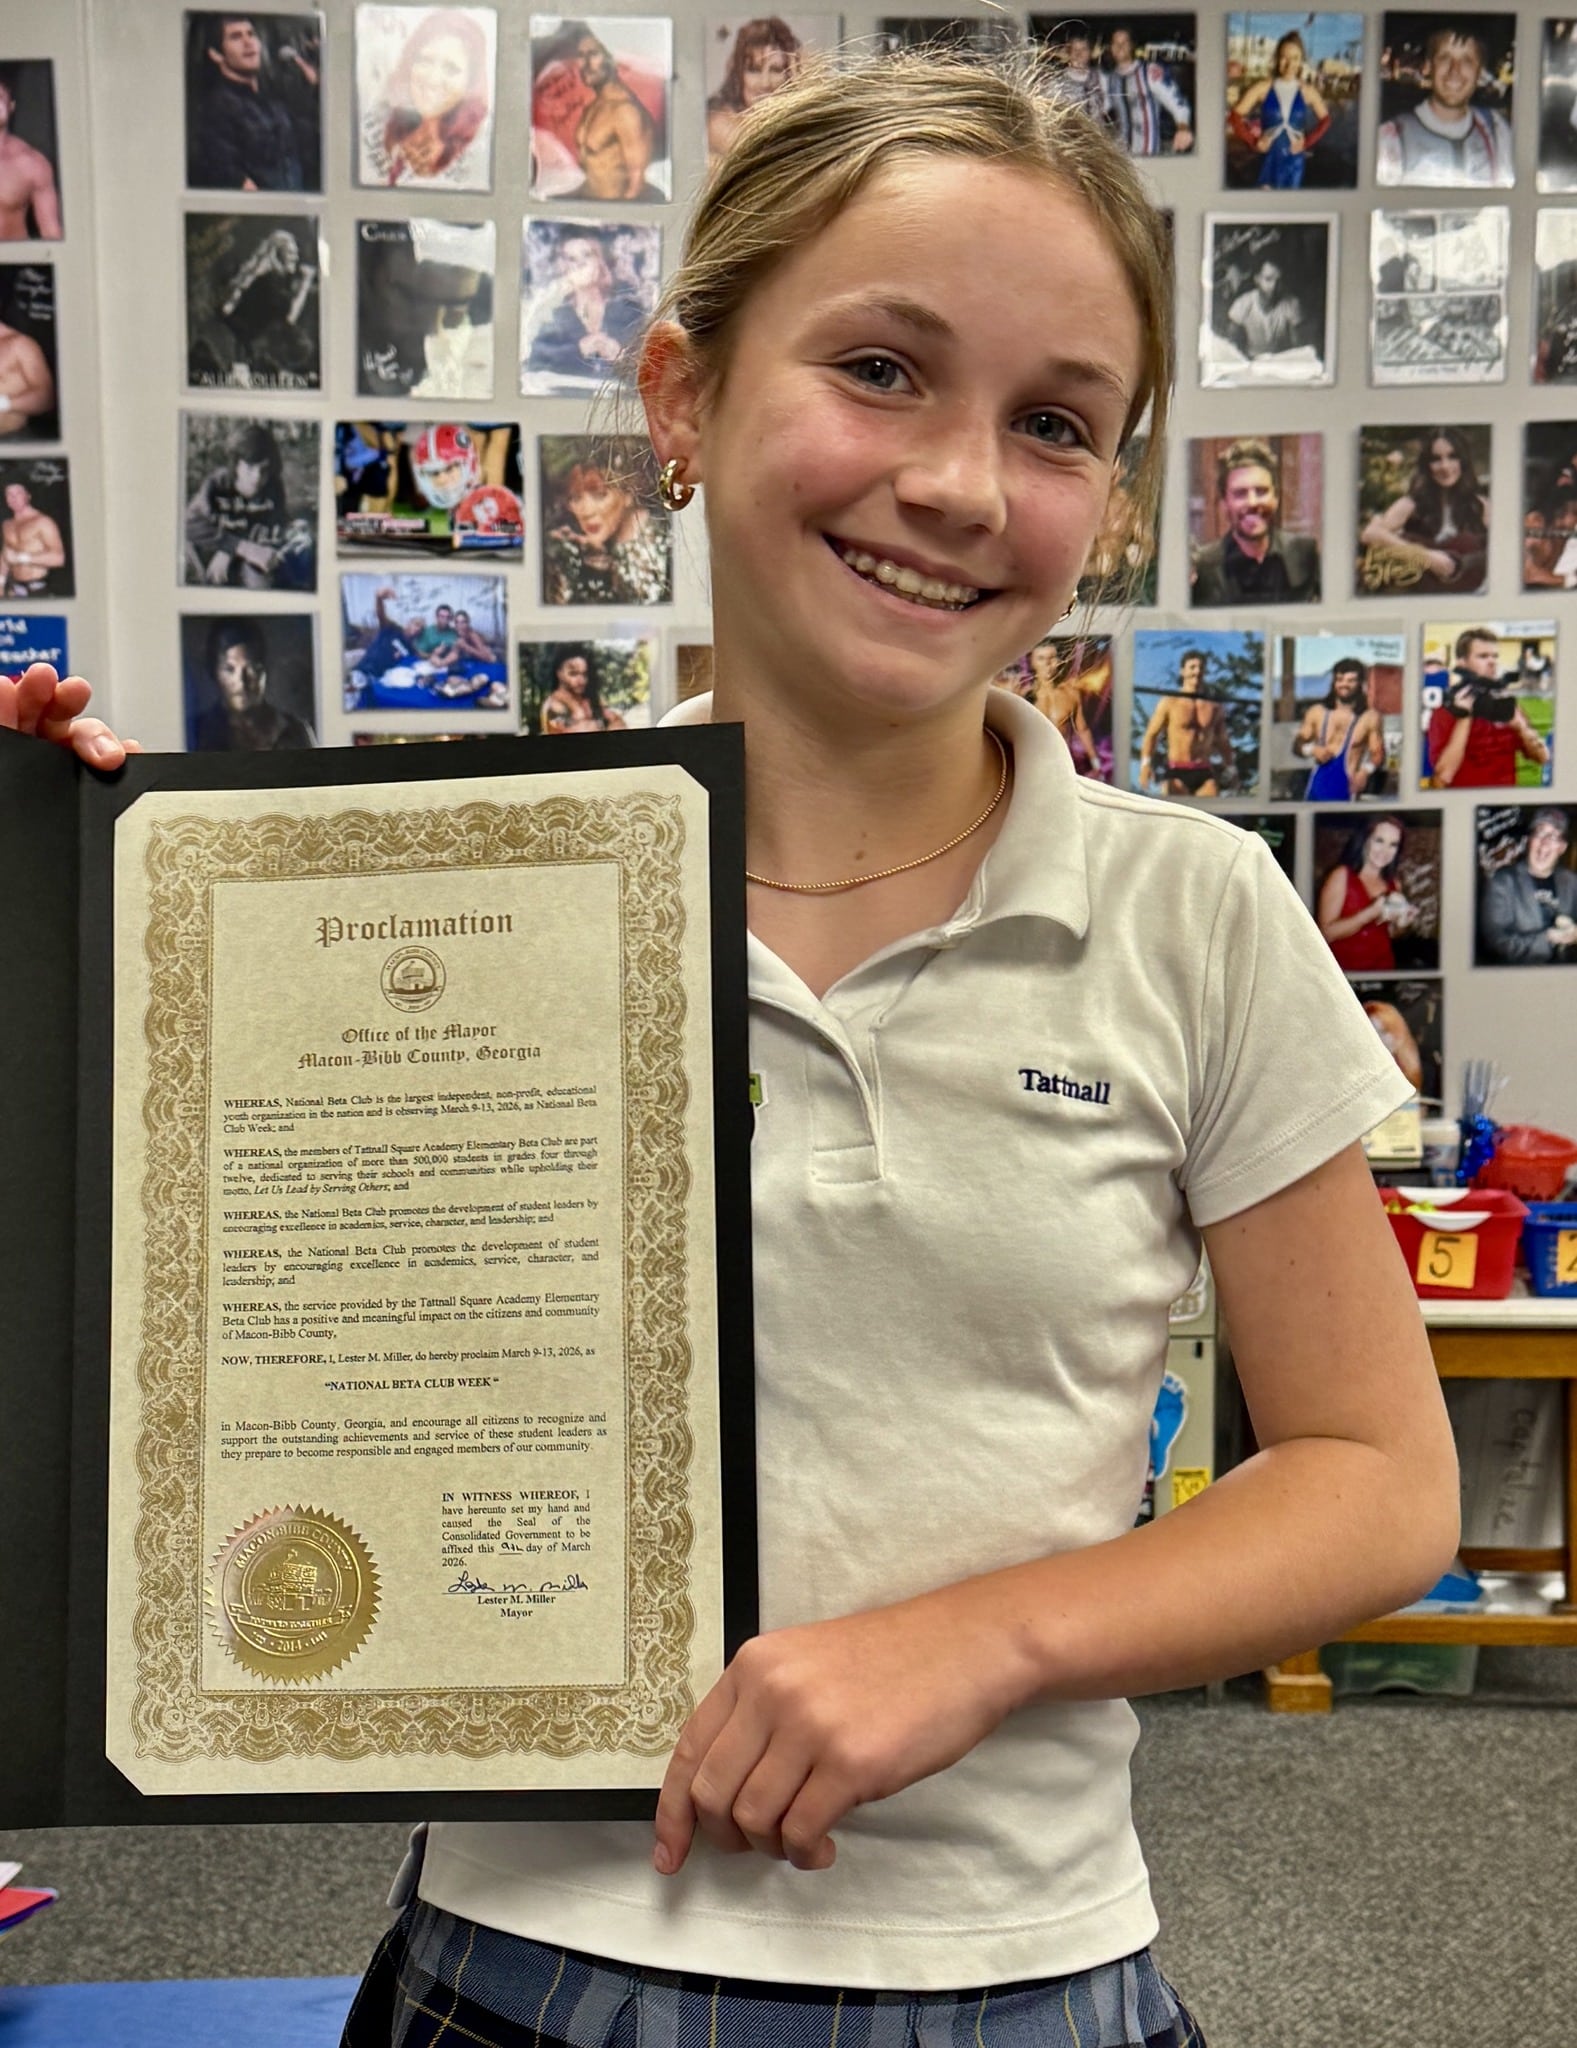 Proclamation
Office of the Mayor
Macon-Bibb County, Georgia
WHEREAS, National Beta Club is the largest independent, non-profit, educational
youth organization in the nation and is observing March 9-13, 2026, as National Beta
Club Week; and
WHEREAS, the members of Tattnall Square Academy Elementary Beta Club are part
of a national organization of more than 500,000 students in grades four through
twelve, dedicated to serving their schools and communities while upholding their
motto, Let Us Lead by Serving Others; and
WHEREAS, the National Beta Club promotes the development of student leaders by
encouraging excellence in academics, service, character, and leadership; and
WHEREAS, the National Beta Club promotes the development of student
leaders by encouraging excellence in academics, service, character, and
leadership; and
WHEREAS, the service provided by the Tattnall Square Academy Elementary
Beta Club has a positive and meaningful impact on the citizens and community
of Macon-Bibb County,
NOW, THEREFORE, I, Lester M. Miller, do hereby proclaim March 9-13, 2026, as
"NATIONAL BETA CLUB WEEK"
in Macon-Bibb County, Georgia, and encourage all citizens to recognize and
support the outstanding achievements and service of these student leaders as
they prepare to become responsible and engaged members of our community.
IN WITNESS WHEREOF, I
have hereunto set my hand and
caused the Seal of the
Consolidated Government to be
affixed this 9th day of March
2026.
Lester M. Miller
Lester M. Miller
Mayor
MACON-BIBB COUNTY
FORWARD TOGETHER
2014
Tattnall
5